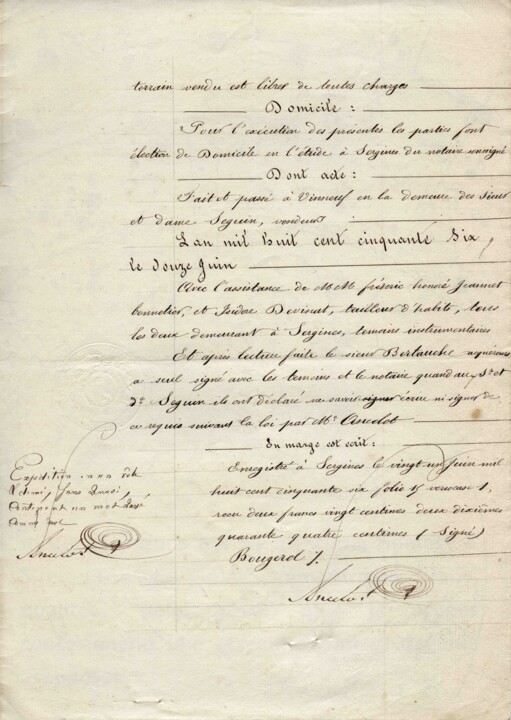 terrain vendu est libre de toutes charges
Domicile :
Pour l'exécution des présentes les parties font
élection de Domicile en l'étude à Sergines du notaire soussigné
Dont acte :
Fait et passé à Vinneuf en la demeure des Sieur
et dame Seguin, vendeurs
L'an mil huit cent cinquante six,
le douze Juin
Avec l'assistance de MM frédéric honoré Jeannet
bonnetier, et Isidore Devinat, tailleur d'habits, tous
les deux demeurant à Sergines, temoins instrumentaires
Et après lecture faite le sieur Berlauche acquéreur
a seul signé avec les temoins et le notaire quand au Sr et
De Seguin ils ont déclaré ne savoir écrire ni signer de
ce requis suivant la loi par Me Ancelot
En marge est écrit :
Enregistré à Sergines le vingt un Juin mil
huit cent cinquante six folio 15 verso case 1,
recu deux francs vingt centimes deux dixièmes
quarante quatre centimes (Signé)
Bougerol /.
Ancelot
Expédition
rôle
un mot
Ancelot